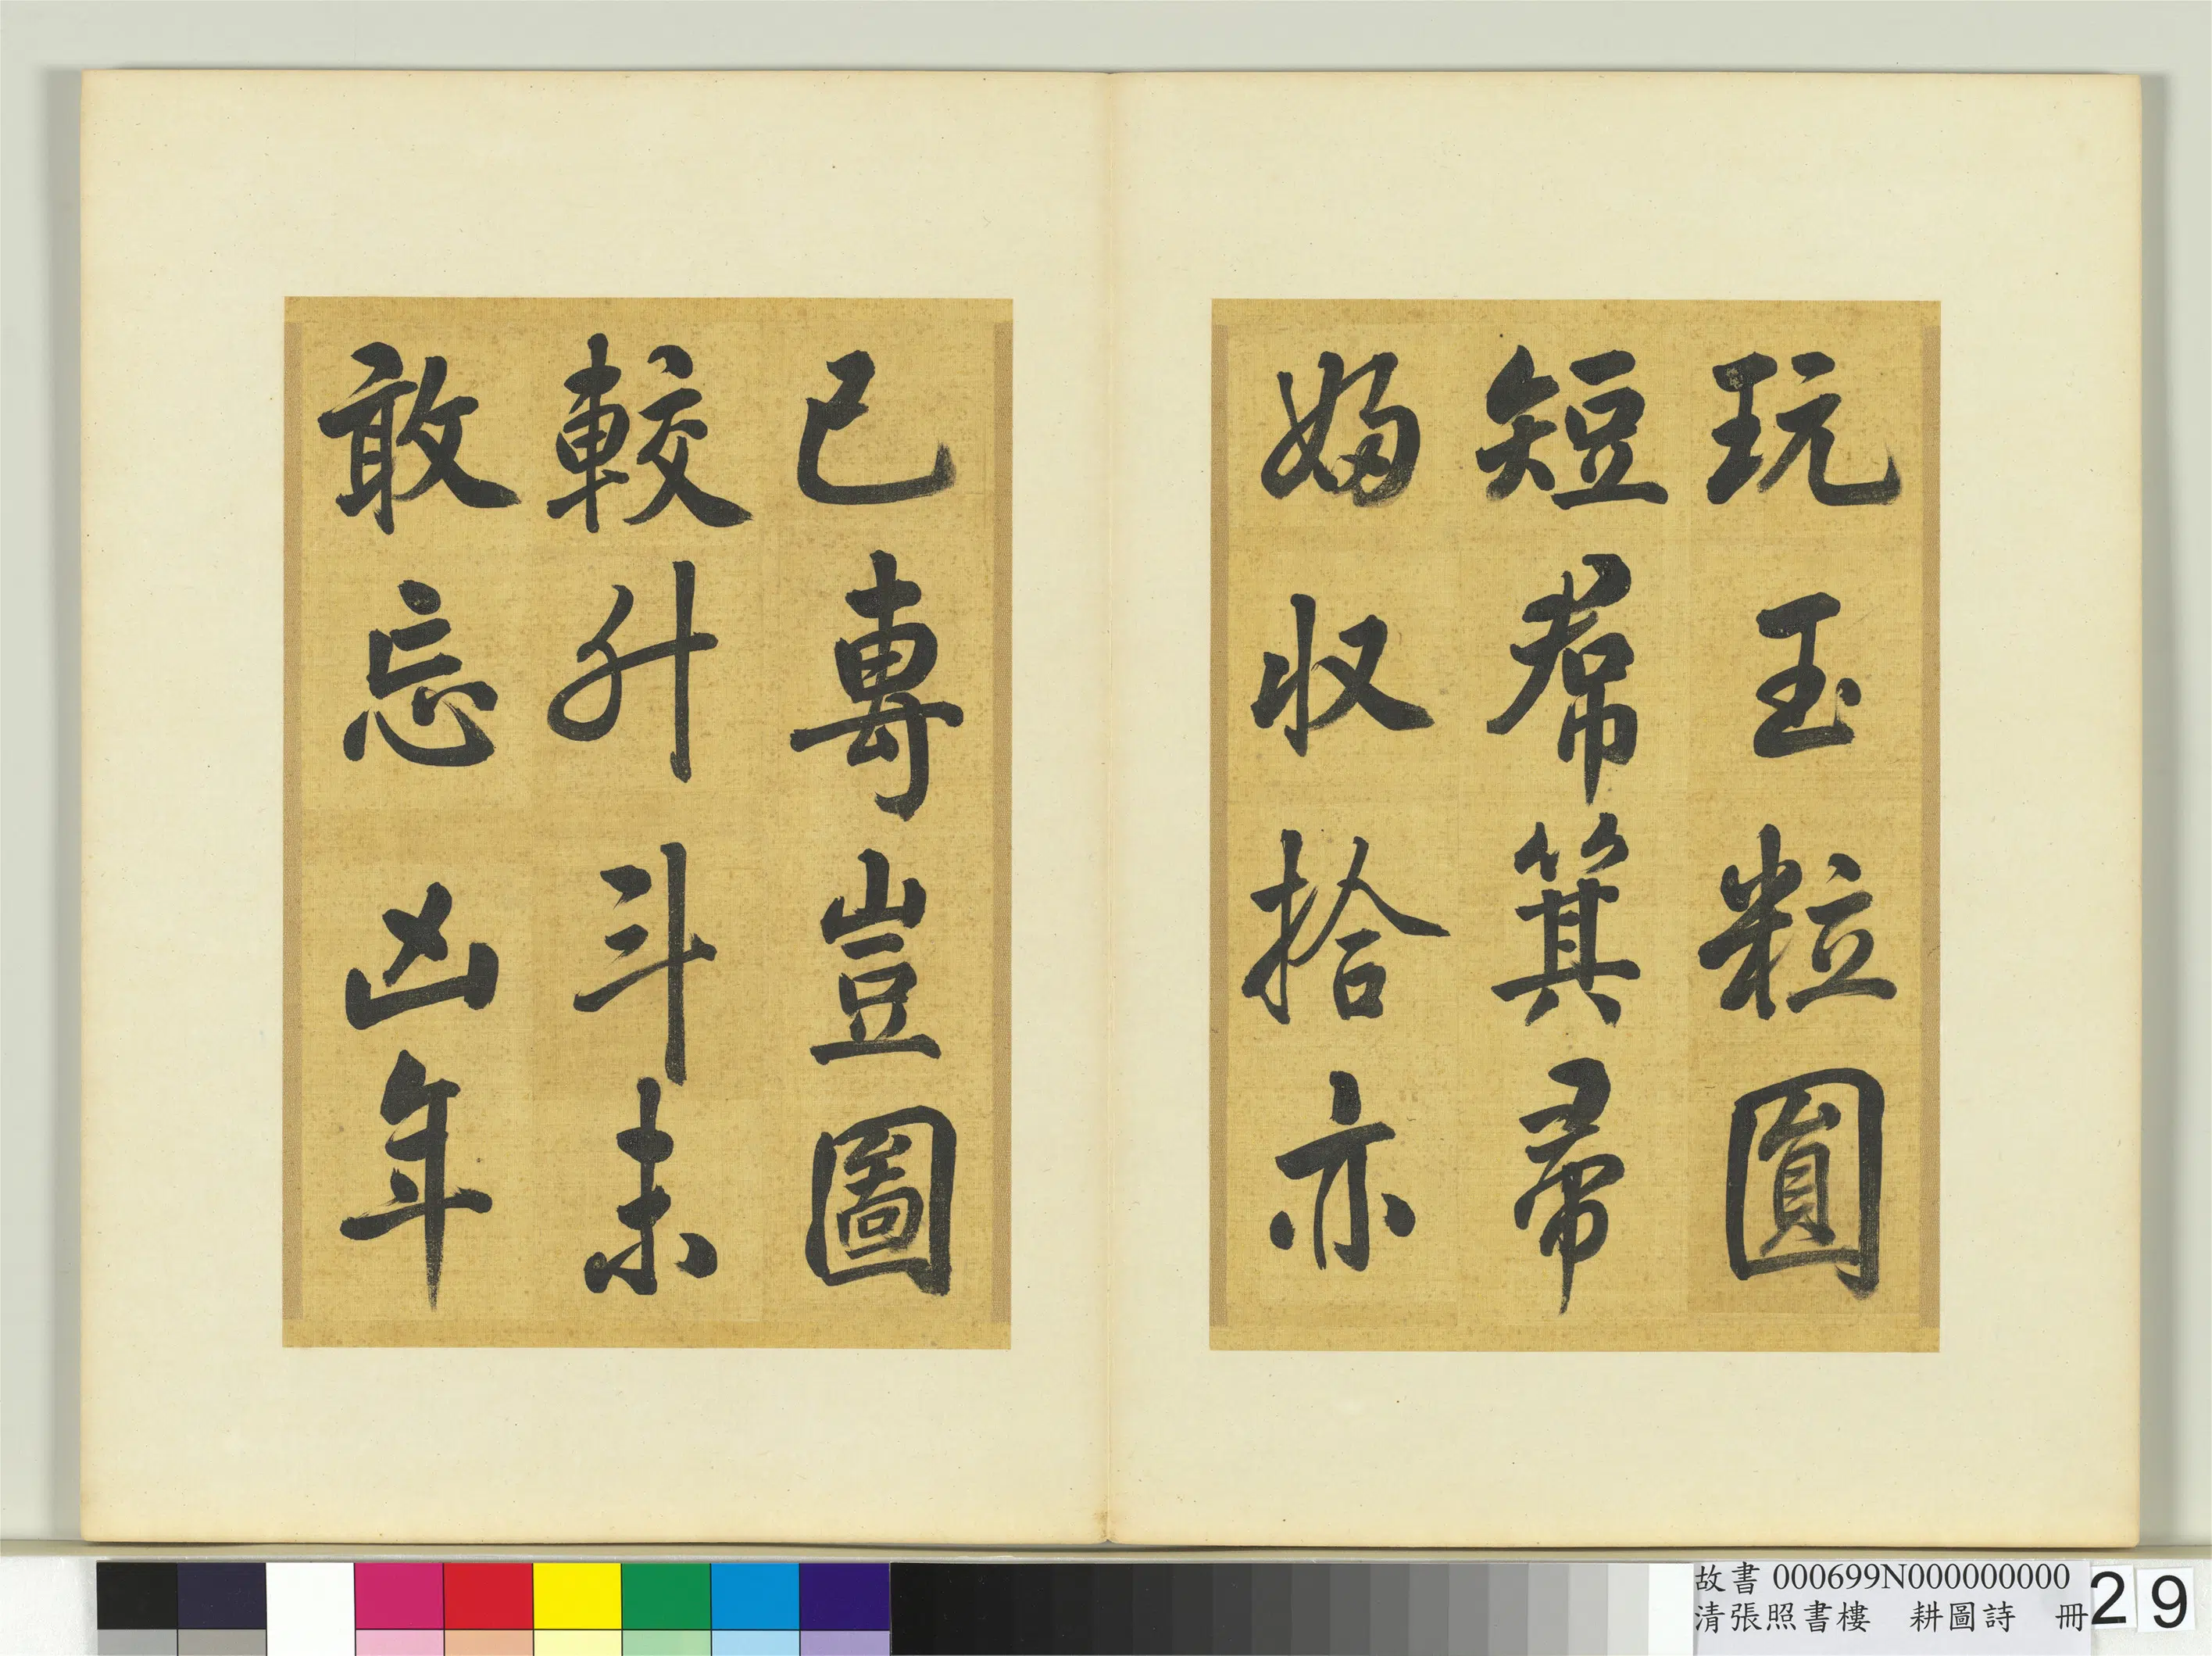 玩玉粒圓
短帬箕帚
婦収拾亦
已專豈圖
較升斗未
敢忘凶年
故書 000699N000000000
清張照書樓　耕圖詩　冊
29